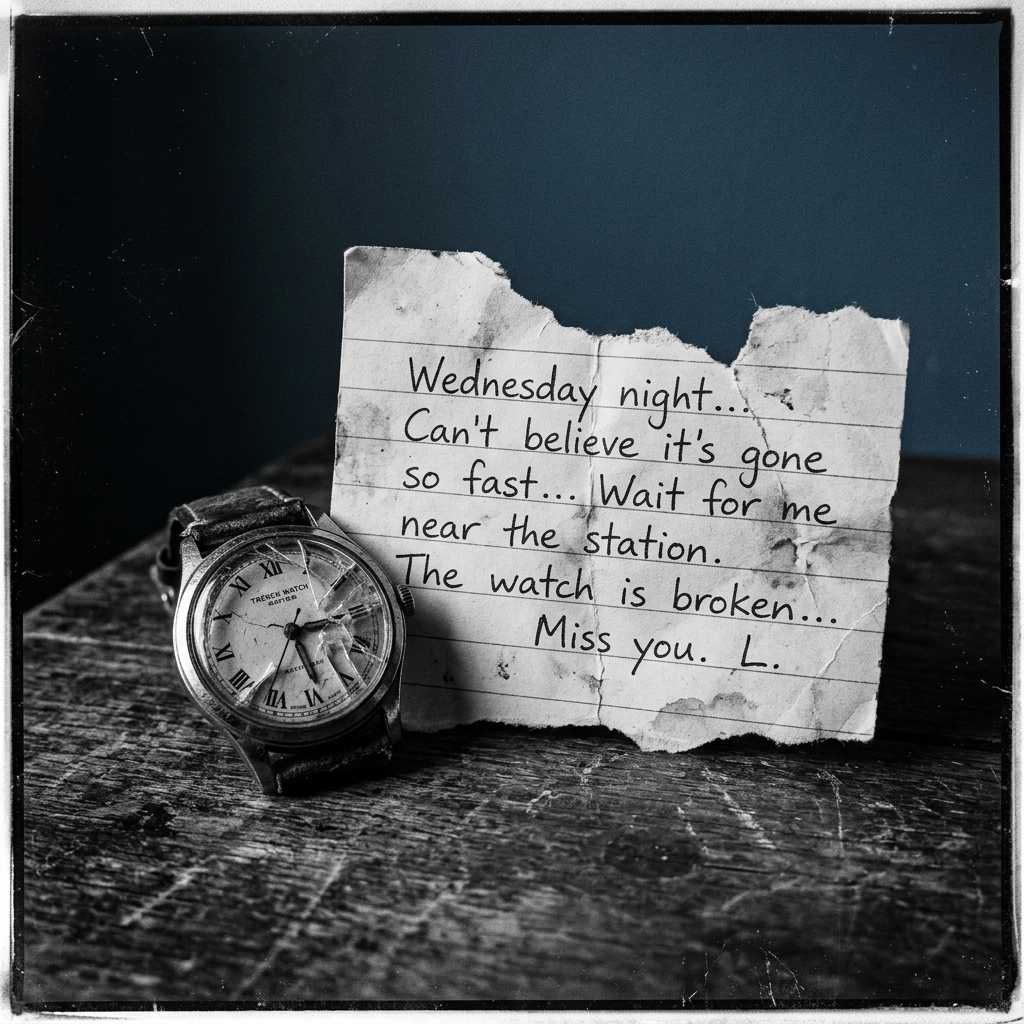 Wednesday night...
Can't believe it's gone
so fast... Wait for me
near the station.
The watch is broken...
Miss you. L.
XII
XI
X
IX
VIII
VII
VI
V
WATCH